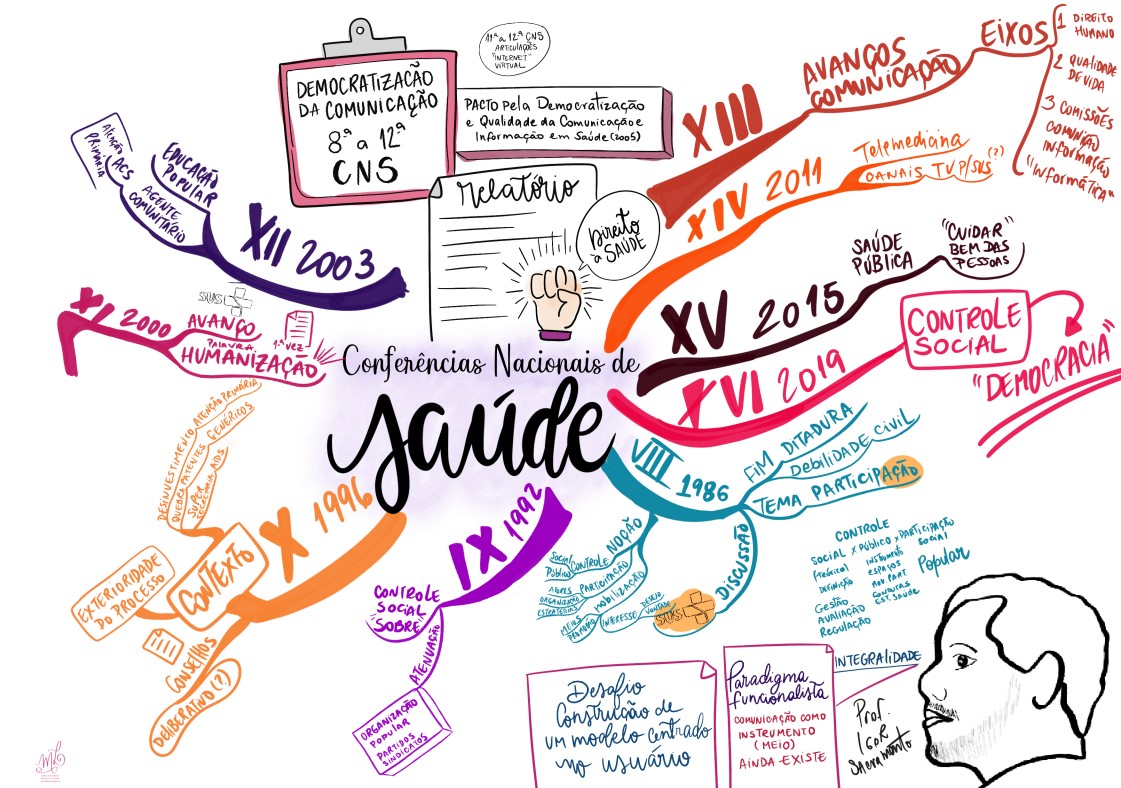 Conferências Nacionais de
Saúde
DEMOCRATIZAÇÃO
DA COMUNICAÇÃO
8ª a 12ª
CNS
11ª a 12ª CNS
ARTICULAÇÕES
"INTERNET"
VIRTUAL
PACTO pela Democratização
e Qualidade da Comunicação e
Informação em Saúde (2005)
Relatório
Direito
à SAÚDE
VIII 1986
FIM DITADURA
DEBILIDADE CIVIL
TEMA PARTICIPAÇÃO
DISCUSSÃO
SUS
NOÇÃO
CONTROLE
Social
Público
PARTICIPAÇÃO
ATORES
ORGANIZAÇÃO
ESTRATÉGIAS
MOBILIZAÇÃO
MEIOS
INTERESSE
DESEJO
VONTADE
CONTROLE
SOCIAL X PÚBLICO X PARTICIPAÇÃO
Social
Popular
DEFINIÇÃO
INSTRUMENTO
ESPAÇOS
CONQUISTAS
EST. SAÚDE
GESTÃO
AVALIAÇÃO
REGULAÇÃO
IX 1992
CONTROLE
SOCIAL
SOBRE
ATENUAÇÃO
ORGANIZAÇÃO
POPULAR
PARTIDOS
SINDICATOS
X 1996
CONTEXTO
DESINVESTIMENTO ATENÇÃO PRIMÁRIA
QUEBRA PATENTES GENÉRICOS
SUPER
SECRETARIA AIDS
EXTERIORIDADE
DO PROCESSO
CONSELHOS
DELIBERATIVO (?)
XI 2000
AVANÇO
PALAVRA 1ª VEZ
HUMANIZAÇÃO
SUS
XII 2003
EDUCAÇÃO
POPULAR
AGENTE
COMUNITÁRIO
ACS
ATENÇÃO
PRIMÁRIA
XIII
AVANÇOS
COMUNICAÇÃO
EIXOS
1 DIREITO
HUMANO
2 QUALIDADE
DE VIDA
3 COMISSÕES
COMUNIÇÃO
INFORMAÇÃO
"INFORMÁTICA"
XIV 2011
Telemedicina
CANAIS TV P/SUS (?)
XV 2015
SAÚDE
PÚBLICA
"CUIDAR
BEM DAS
PESSOAS"
XVI 2019
CONTROLE
SOCIAL
"DEMOCRACIA"
Desafio
Construção de
UM modelo centrado
no usuário
Paradigma
funcionalista
COMUNICAÇÃO COMO
INSTRUMENTO
(MEIO)
AINDA EXISTE
INTEGRALIDADE
Prof.
IGOR
Sacramento